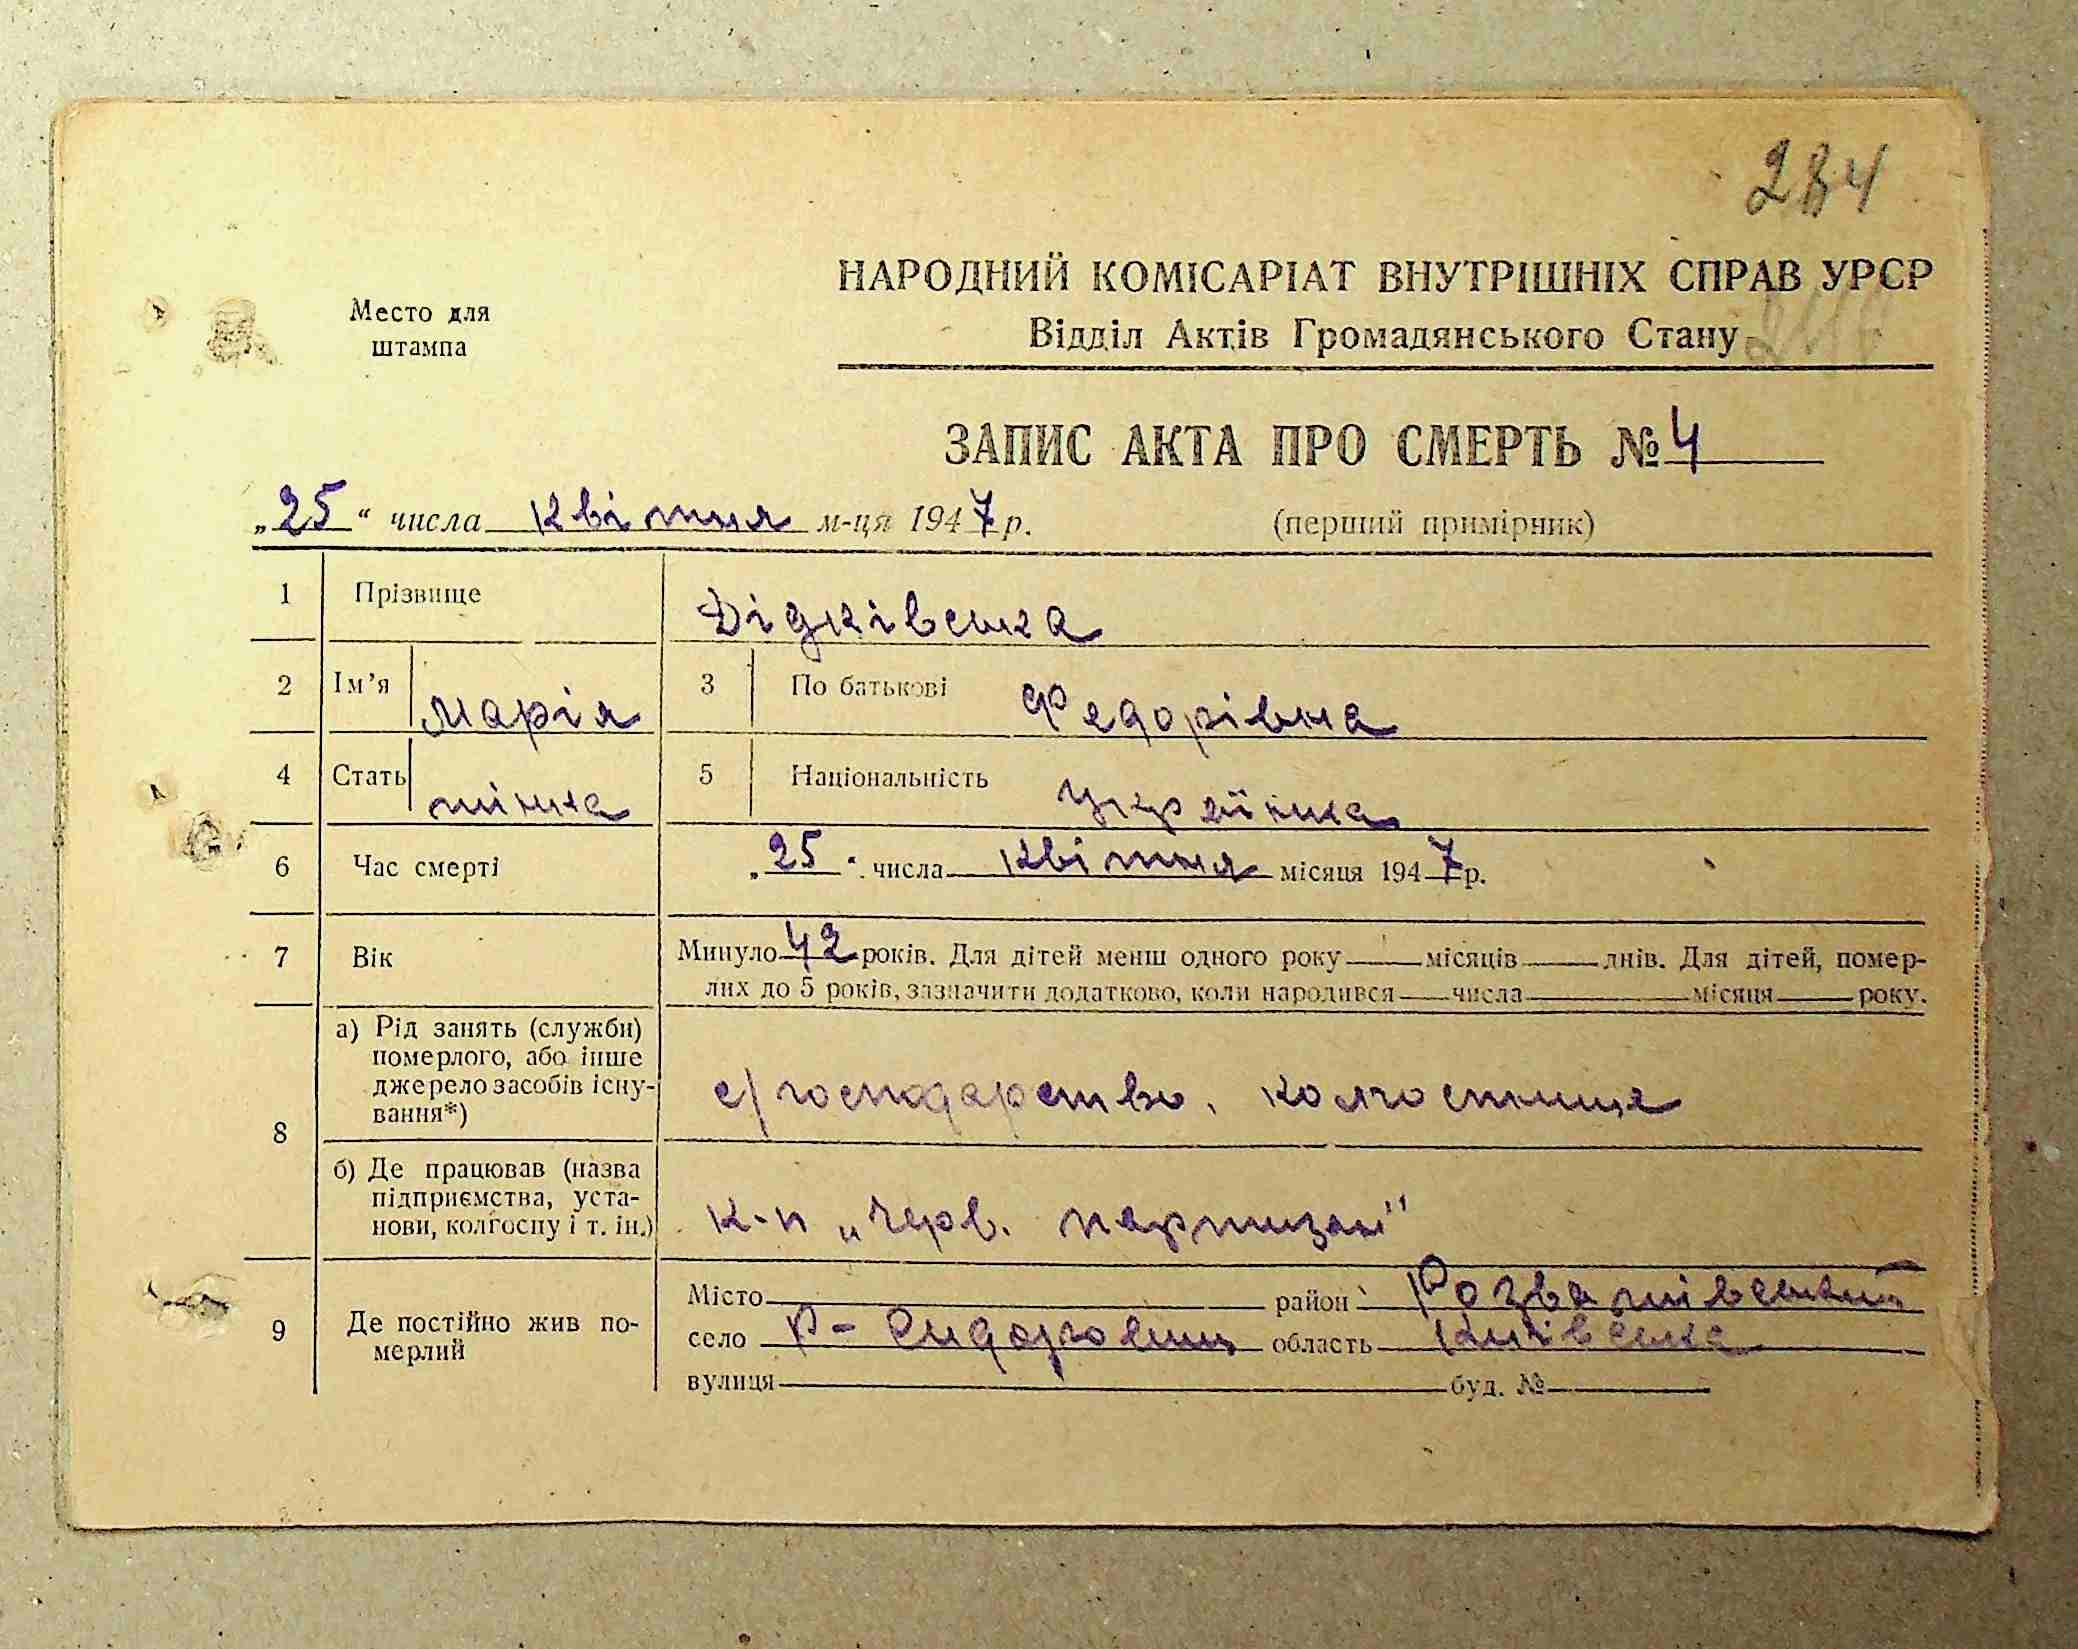 284
Место для
штампа
НАРОДНИЙ КОМІСАРІАТ ВНУТРІШНІХ СПРАВ УРСР
Відділ Актів Громадянського Стану
ЗАПИС АКТА ПРО СМЕРТЬ № 4
„25“ числа квітня м-ця 1947 р. (перший примірник)
1 Прізвище Дідківська
2 Ім’я Марія 3 По батькові Федорівна
4 Стать жінка 5 Національність Українка
6 Час смерті „25“ числа квітня місяця 1947 р.
7 Вік Минуло 42 років. Для дітей менш одного року місяців днів. Для дітей, помер-
лих до 5 років, зазначити додатково, коли народився числа місяця року.
8 а) Рід занять (служби)
померлого, або інше
джерело засобів існу-
вання*)
с/господарство. колгоспниця
б) Де працював (назва
підприємства, уста-
нови, колгоспу і т. ін.)
к-п „Черв. партизан"
9 Де постійно жив по-
мерлий
Місто район Розважівський
село область Київська
вулиця буд. №